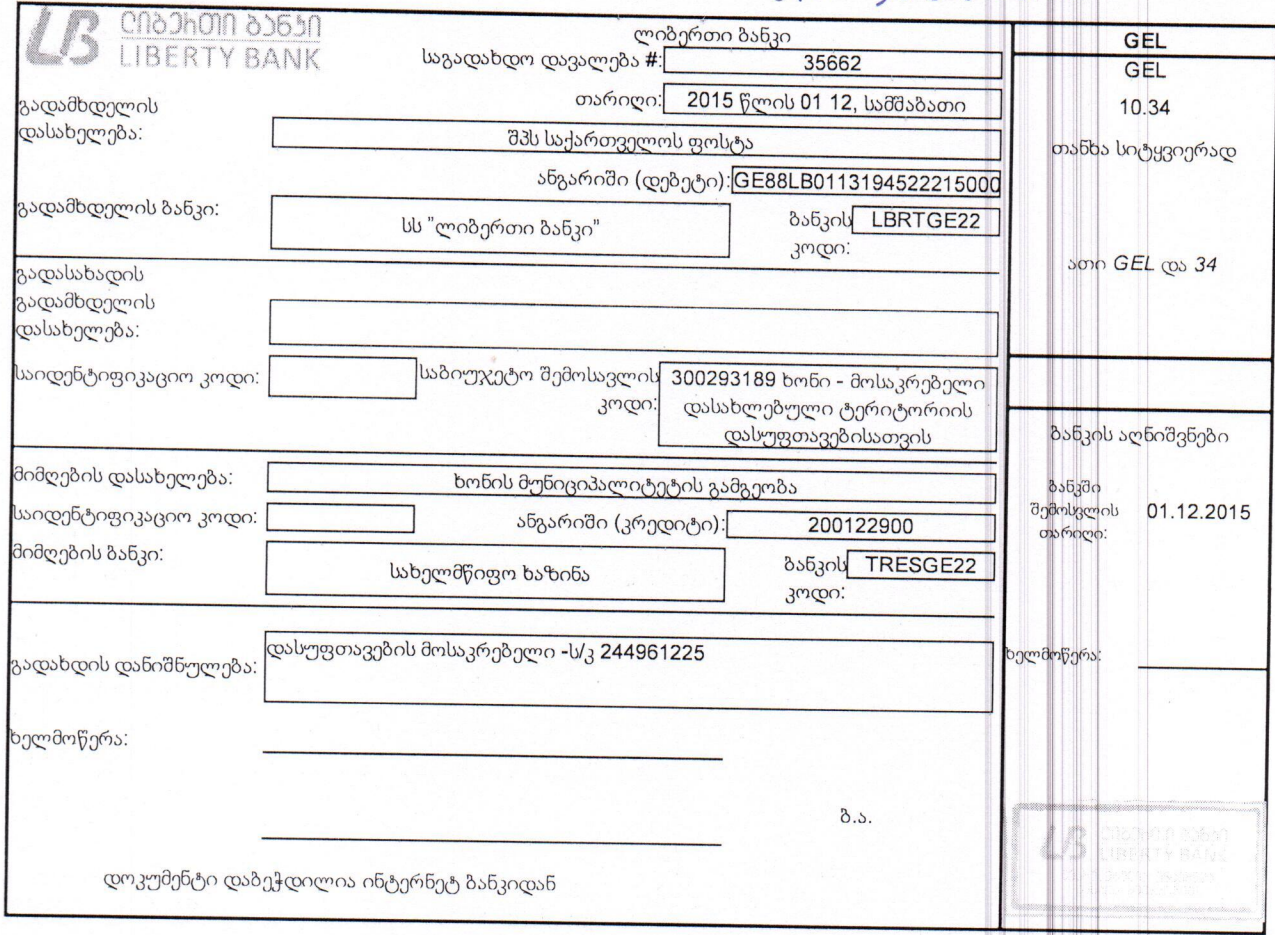 ლიბერთი ბანკი
LIBERTY BANK
ლიბერთი ბანკი
საგადახდო დავალება #: 35662
თარიღი: 2015 წლის 01 12, სამშაბათი
გადამხდელის
დასახელება: შპს საქართველოს ფოსტა
ანგარიში (დებეტი): GE88LB0113194522215000
გადამხდელის ბანკი: სს "ლიბერთი ბანკი" ბანკის LBRTGE22
კოდი:
გადასახადის
გადამხდელის
დასახელება:
საიდენტიფიკაციო კოდი: საბიუჯეტო შემოსავლის 300293189 ხონი - მოსაკრებელი
კოდი: დასახლებული ტერიტორიის
დასუფთავებისათვის
მიმღების დასახელება: ხონის მუნიციპალიტეტის გამგეობა
საიდენტიფიკაციო კოდი: ანგარიში (კრედიტი): 200122900
მიმღების ბანკი: სახელმწიფო ხაზინა ბანკის TRESGE22
კოდი:
გადახდის დანიშნულება: დასუფთავების მოსაკრებელი -ს/კ 244961225
ხელმოწერა:
ბ.ა.
დოკუმენტი დაბეჭდილია ინტერნეტ ბანკიდან
GEL
GEL
10.34
თანხა სიტყვიერად
ათი GEL და 34
ბანკის აღნიშვნები
ბანკში
შემოსვლის 01.12.2015
თარიღი:
ხელმოწერა:
LIBERTY BANK